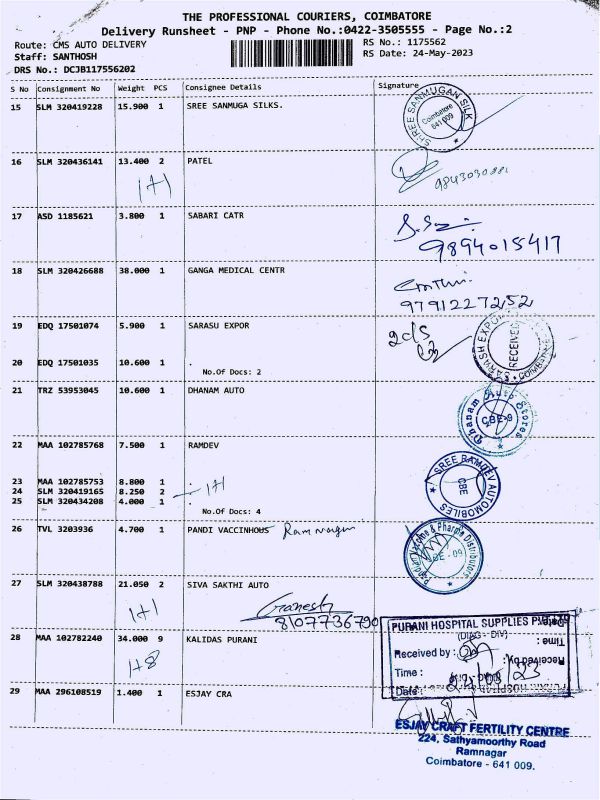 THE PROFESSIONAL COURIERS, COIMBATORE
Delivery Runsheet - PNP - Phone No.:0422-3505555 - Page No.:2
Route: CMS AUTO DELIVERY
RS No.: 1175562
Staff: SANTHOSH
RS Date: 24-May-2023
DRS No.: DCJB117556202
S No Consignment No Weight PCS Consignee Details Signature
15 SLM 320419228 15.900 1 SREE SANMUGA SILKS.
SHREE SANMUGAN SILK
Coimbatore
641 009
16 SLM 320436141 13.400 2 PATEL
1+1
17 ASD 1185621 3.800 1 SABARI CATR
9894015417
18 SLM 320426688 38.000 1 GANGA MEDICAL CENTR
9791227252
19 EDQ 17501074 5.900 1 SARASU EXPOR
RECEIVED
20 EDQ 17501035 10.600 1 .
No.Of Docs: 2
21 TRZ 53953045 10.600 1 DHANAM AUTO
Dhanam Auto Stores
CBE-9
22 MAA 102785768 7.500 1 RAMDEV
SREE RAMDEV AUTOMOBILES
CBE
23 MAA 102785753 8.800 1 .
24 SLM 320419165 8.250 2 1+1
25 SLM 320434208 4.000 1 .
No.Of Docs: 4
26 TVL 3203936 4.700 1 PANDI VACCINHOUS Ramnagar
& Pharma Distributors
27 SLM 320438788 21.050 2 SIVA SAKTHI AUTO
1+1
Ganesh
8107736790
28 MAA 102782240 34.000 9 KALIDAS PURANI
1+8
PURANI HOSPITAL SUPPLIES
(DIAG - DIV)
Received by :
Time :
Date :
29 MAA 296108519 1.400 1 ESJAY CRA
ESJAY CRAFT FERTILITY CENTRE
224, Sathyamoorthy Road
Ramnagar
Coimbatore - 641 009.